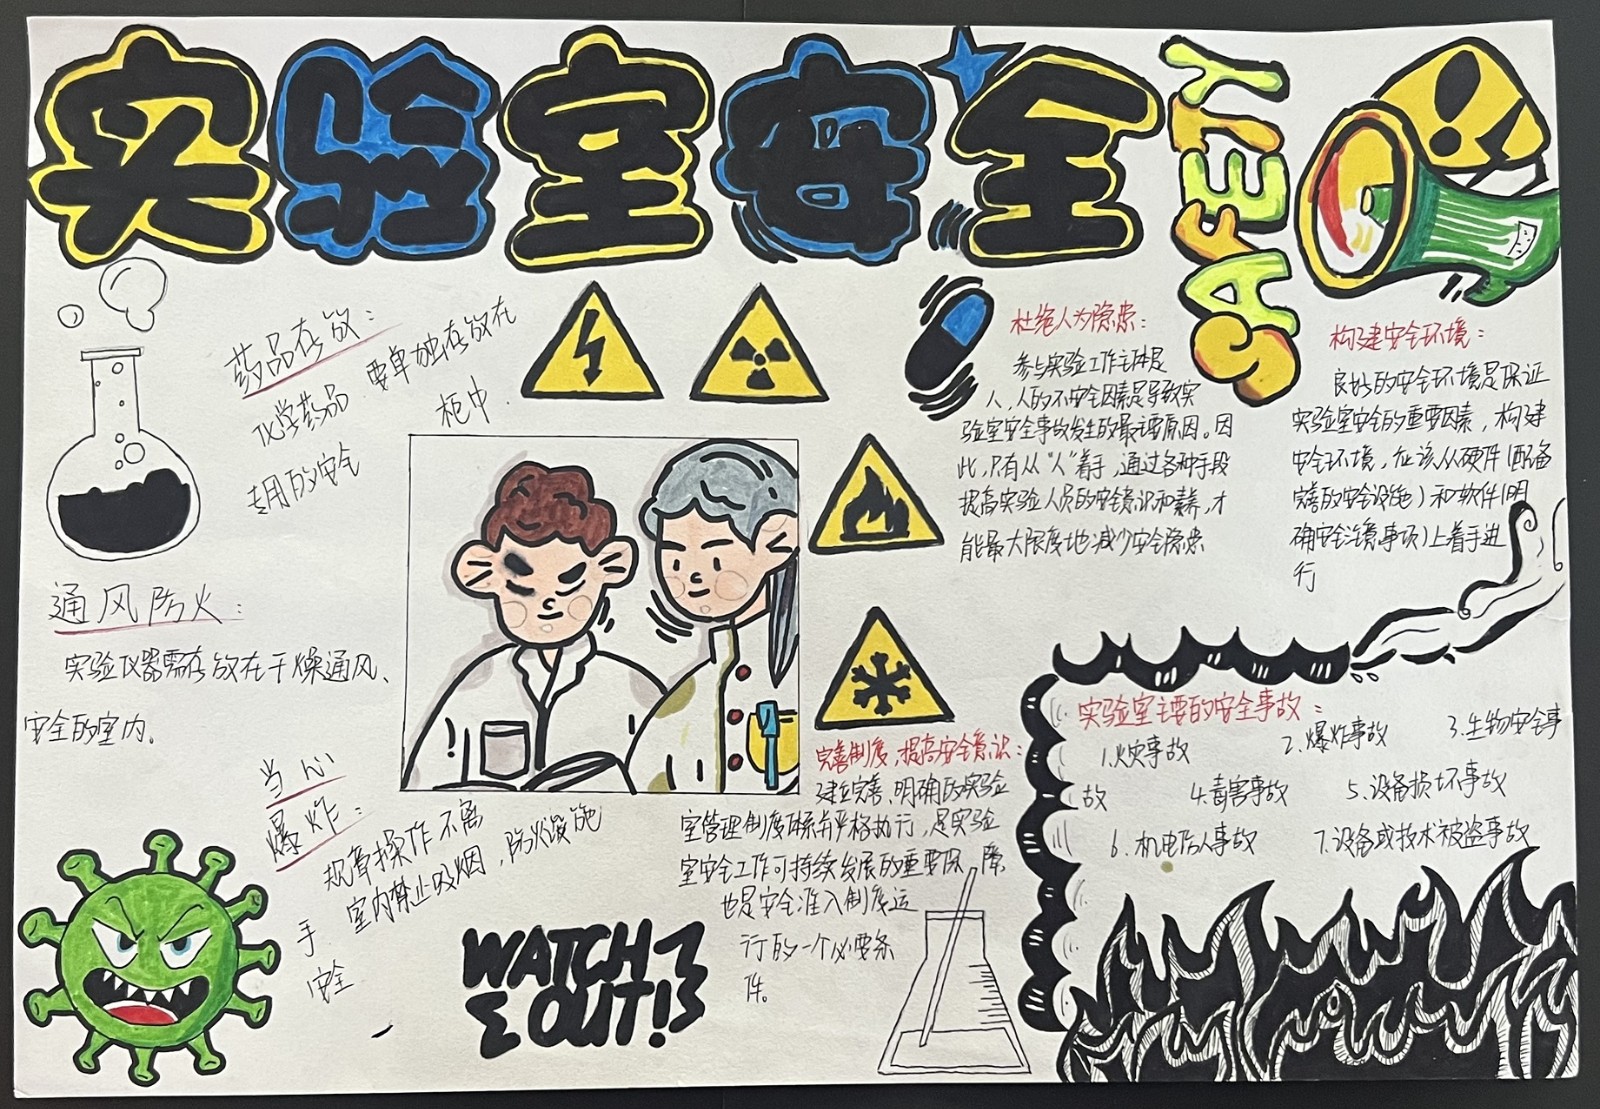 实验室安全
SAFETY
药品存放：
化学药品 要单独存放在
专用的安全 柜中.
通风防火：
实验仪器需存放在干燥通风、
安全的室内。
当心
爆炸：
规章操作 不离
手 室内禁止吸烟，防火设施
安全
WATCH
OUT!
杜绝人为隐患：
参与实验工作主体是
人，人的不安全因素是导致实
验室安全事故发生的最主要原因。因
此，只有从“人”着手，通过各种手段
提高实验人员的安全意识和素养，才
能最大限度地减少安全隐患
构建安全环境：
良好的安全环境是保证
实验室安全的重要因素，构建
安全环境，应该从硬件（配备
完善的安全设施）和软件（明
确安全注意事项）上着手进
行
完善制度，提高安全意识：
建立完善、明确的实验
室管理制度体系并严格执行，是实验
室安全工作可持续发展的重要保障
也是安全准入制度运
行的一个必要条
件。
实验室主要的安全事故：
1.火灾事故 2.爆炸事故 3.生物安全事
故 4.毒害事故 5.设备损坏事故
6.机电伤人事故 7.设备或技术被盗事故